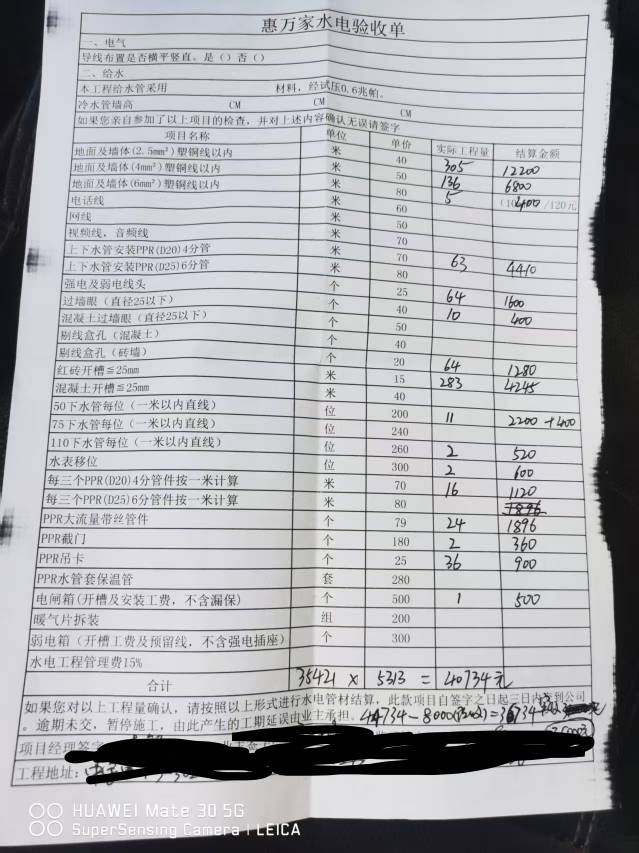 惠万家水电验收单
一、电气
导线布置是否横平竖直。是（）否（）
二、给水
本工程给水管采用 材料，经试压0.6兆帕。
冷水管墙高 CM CM CM
如果您亲自参加了以上项目的检查，并对上述内容确认无误请签字
项目名称 单位 单价 实际工程量 结算金额
地面及墙体(2.5mm²)塑铜线以内 米 40 305 12200
地面及墙体(4mm²)塑铜线以内 米 50 136 6800
地面及墙体(6mm²)塑铜线以内 米 80 5 400 /120元
电话线 米 60
网线 米 50
视频线，音频线 米 70
上下水管安装PPR(D20)4分管 米 70 63 4410
上下水管安装PPR(D25)6分管 米 80
强电及弱电线头 个 25 64 1600
过墙眼（直径25以下） 个 40 10 400
混凝土过墙眼(直径25以下) 个 50
剔线盒孔（混凝土） 个 40
剔线盒孔（砖墙） 个 20 64 1280
红砖开槽≦25mm 米 15 283 4245
混凝土开槽≦25mm 米 40
50下水管每位（一米以内直线） 位 200 11 2200 +400
75下水管每位（一米以内直线） 位 240
110下水管每位（一米以内直线） 位 260 2 520
水表移位 位 300 2 600
每三个PPR(D20)4分管件按一米计算 米 70 16 1120
每三个PPR(D25)6分管件按一米计算 米 80 1896
PPR大流量带丝管件 个 79 24 1896
PPR截门 个 180 2 360
PPR吊卡 个 25 36 900
PPR水管套保温管 套 280
电闸箱(开槽及安装工费，不含漏保) 个 500 1 500
暖气片拆装 组 200
弱电箱（开槽工费及预留线，不含强电插座） 个 300
水电工程管理费15%
合计 35421 × 5313 = 40734元
如果您对以上工程量确认，请按照以上形式进行水电管材结算，此款项自签字之日起三日内到公司
。逾期未交，暂停施工，由此产生的工期延误由业主承担。44734-8000
项目经理签字
工程地址：
HUAWEI Mate 30 5G
SuperSensing Camera | LEICA